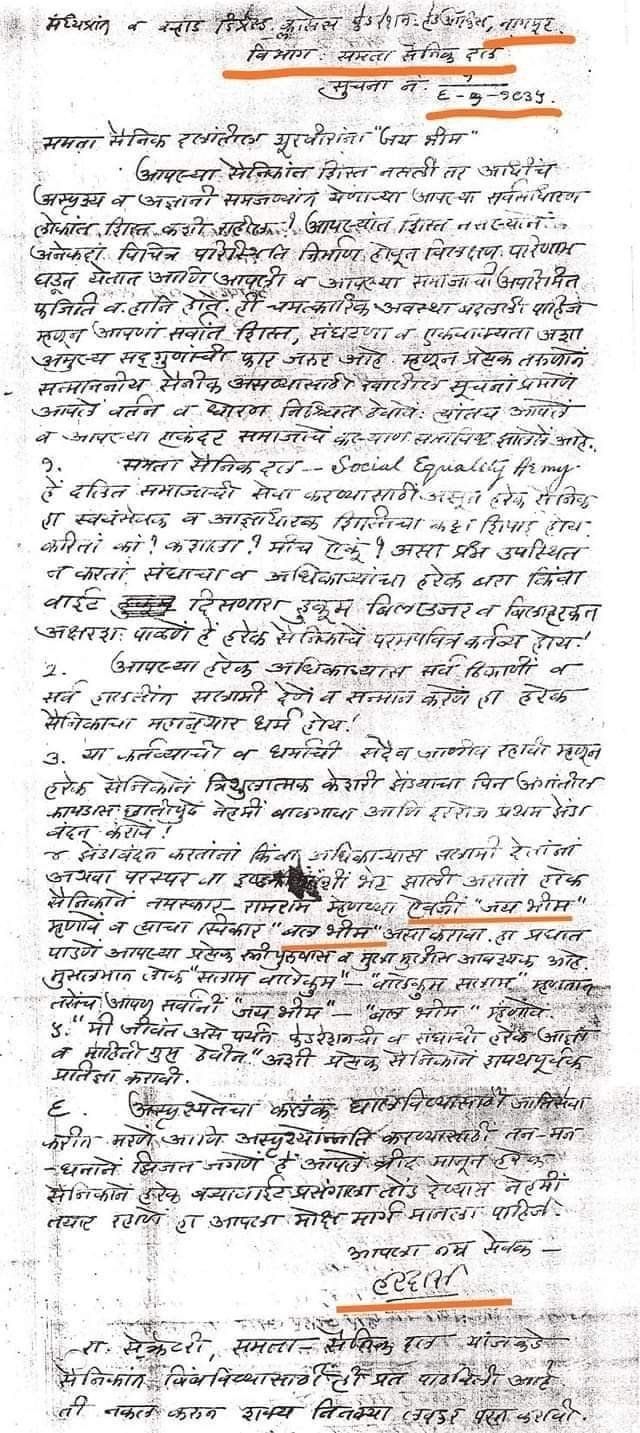 मध्यप्रांत व वऱ्हाड डिप्रेस्ड क्लासेस फेडरेशन: हेड ऑफिस, नागपूर.
विभाग: समता सैनिक दल
सुचना नं. १
६-७-१९३५.
समता सैनिक दलांतील शूरवीरांना "जय भीम"
आपल्या सैनिकांत शिस्त नसली तर आधींच
अस्पृश्य व अज्ञानी समजण्यांत येणाऱ्या आपल्या सर्वसाधारण
लोकांत शिस्त कशी राहील? आपल्यांत शिस्त नसल्यानें
अनेकदां विचित्र परिस्थिति निर्माण होवून विलक्षण परिणाम
घडून येतात आणि आपली व आपल्या समाजाची अपरिमित
फजिति व हानि होते. ही चमत्कारिक अवस्था बदलली पाहिजे
म्हणून आपणां सर्वांत शिस्त, संघटणा व एकवाक्यता अशा
अमुल्य सद्गुणांची फार जरुर आहे. म्हणून प्रत्येक तरुणानें
सन्माननीय सैनीक असण्यासाठी खालील सूचनां प्रमाणें
आपलें वर्तन व धोरण निश्चित ठेवावे: त्यांतच आपलें
व आपल्या एकंदर समाजाचें कल्याण समाविष्ट झालेलें आहे.
१. समता सैनिक दल -- Social Equality Army
हें दलित समाजाची सेवा करण्यासाठीं असून हरेक सैनिक
हा स्वयंसेवक व आज्ञाधारक शिस्तीचा कट्टा शिपाई होय.
करितां कां? कशाला? मीच ऐकूं? असा प्रश्न उपस्थित
न करतां संघाचा व अधिकाऱ्यांचा हरेक बरा किंवा
वाईट दिसणारा हुकूम बिलाउजर व बिलाहरकत
अक्षरशः पाळणें हें हरेक सैनिकाचें परमपवित्र कर्तव्य होय!
2. आपल्या हरेक अधिकाऱ्यास सर्व ठिकाणीं व
सर्व हालतींत सलामी देणें व सन्मान करणें हा हरेक
सैनिकाचा धर्म होय!
३. या कर्तव्याची व धर्माची सदैव जाणीव रहावी म्हणून
हरेक सैनिकानें त्रिशुलात्मक केशरी झेंड्याचा पिन अंगांतील
कापडास छातीपुढें नेहमीं बाळगावा आणि दररोज प्रथम झेंडा
वंदन करावें!
४ झेंडावंदन करतांनां किंवा अधिकाऱ्यास सलामी देतांनां
अथवा परस्पर वा भेट झाली असतां हरेक
सैनिकानें नमस्कार - रामराम म्हणण्या ऐवजीं "जय भीम"
म्हणावें व त्याचा स्विकार "बल भीम" असा करावा. हा प्रघात
पाडणें आपल्या प्रत्येक स्त्रीपुरुषास व मुला मुलीस आवश्यक आहे.
मुसलमान लोक "सलाम वालेकुम" - "वालेकुम सलाम" म्हणतात
तसेंच आपण सर्वांनीं "जय भीम" - "बल भीम" म्हणावें.
५. "मी जीवंत असे पर्यंत फेडरेशनची व संघाची हरेक आज्ञा
व माहिती गुप्त ठेवीन" अशी प्रत्येक सैनिकानें शपथपूर्वक
प्रतिज्ञा करावी.
६. अस्पृश्यतेचा कलंक घालविण्यासाठी जातिसेवा
करीत मरणें आणि अस्पृश्योन्नति करण्यासाठीं तन-मन
-धनानें झिजत जगणें हें आपलें ब्रीद मानून हरेक
सैनिकानें हरेक बऱ्यावाईट प्रसंगाला तोंड देण्यास नेहमीं
तयार रहाणें हा आपला मोक्ष मार्ग मानला पाहिजे.
आपला नम्र सेवक -
हरदास
रा. सेक्रेटरी, समता - सैनिक दल यांजकडे
सैनिकांत बिंबविण्यासाठीं ही प्रत पाठविली आहे
ती नकल करून शक्य तितक्या लवकर परत करावी.